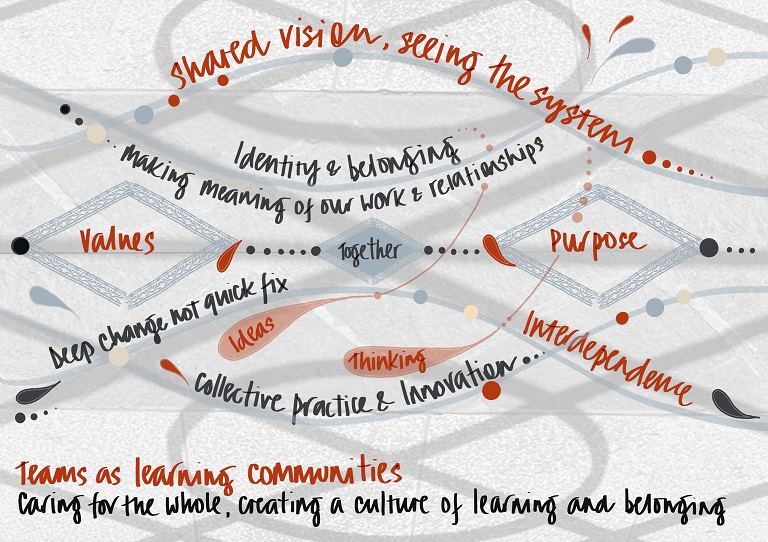 shared vision, seeing the system
Identity & belonging
making meaning of our work & relationships
Values
Together
Purpose
Deep change not quick fix
Ideas
Thinking
Interdependence
Collective practice & Innovation
Teams as learning communities
Caring for the whole, creating a culture of learning and belonging